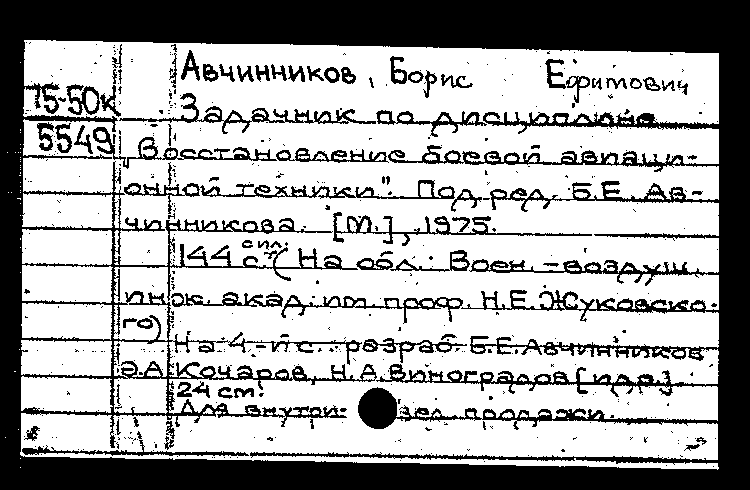 Авчинников, Борис Ефимович
75-50к
Задачник по дисциплине
5549
"Восстановление боевой авиаци-
онной техники". Под ред. Б.Е. Ав-
чинникова. [М.], 1975.
144 с. с ил.
(На обл.: Воен.-воздуш.
инж. акад. им. проф. Н.Е. Жуковско-
го)
На 4-й с.: разраб. Б.Е. Авчинников
Э.А. Кочаров, Н.А. Виноградов [и др.]
24 cm.
Для внутри- вед. продажи.